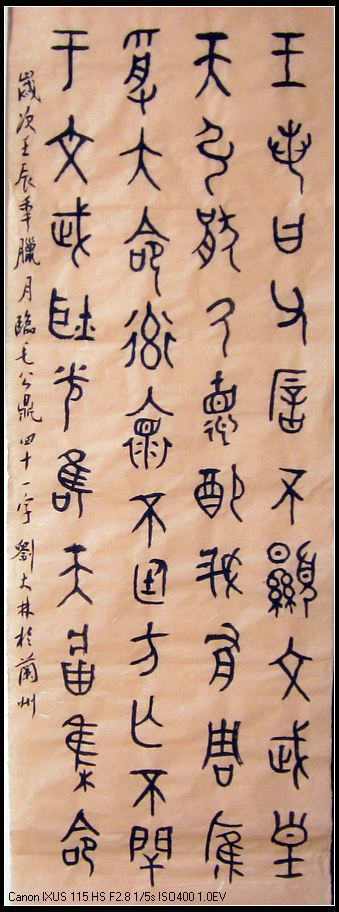 王若曰父厝不顯文武皇
天弘猒氒德配我有周膺
受大命率懷不廷方亡不閈
于文武耿光唯天將集命
歲次壬辰年臘月臨毛公鼎四十一字 劉大林於蘭州
Canon IXUS 115 HS F2.8 1/5s ISO400 1.0EV